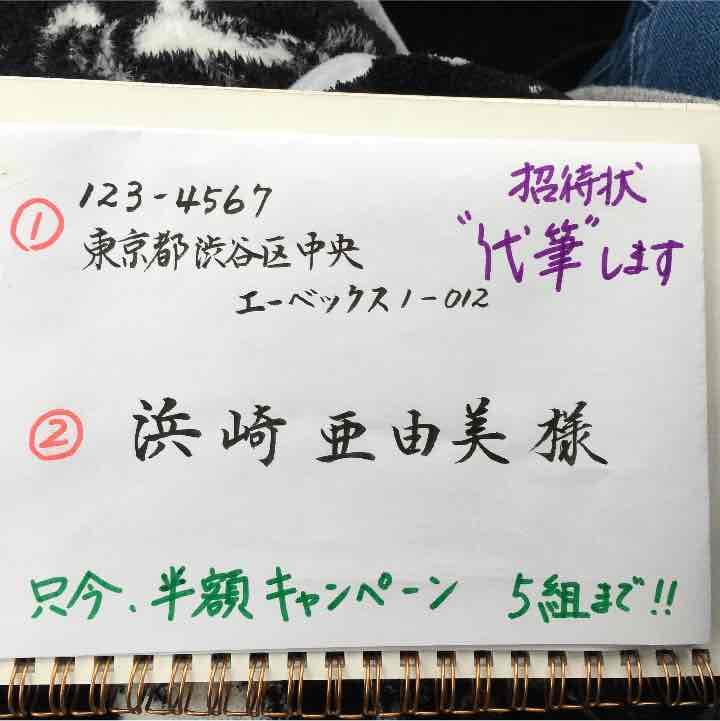 ① 123-4567
東京都渋谷区中央
エーベックス1-012
招待状
"代筆"します
② 浜崎亜由美様
只今、半額キャンペーン 5組まで!!